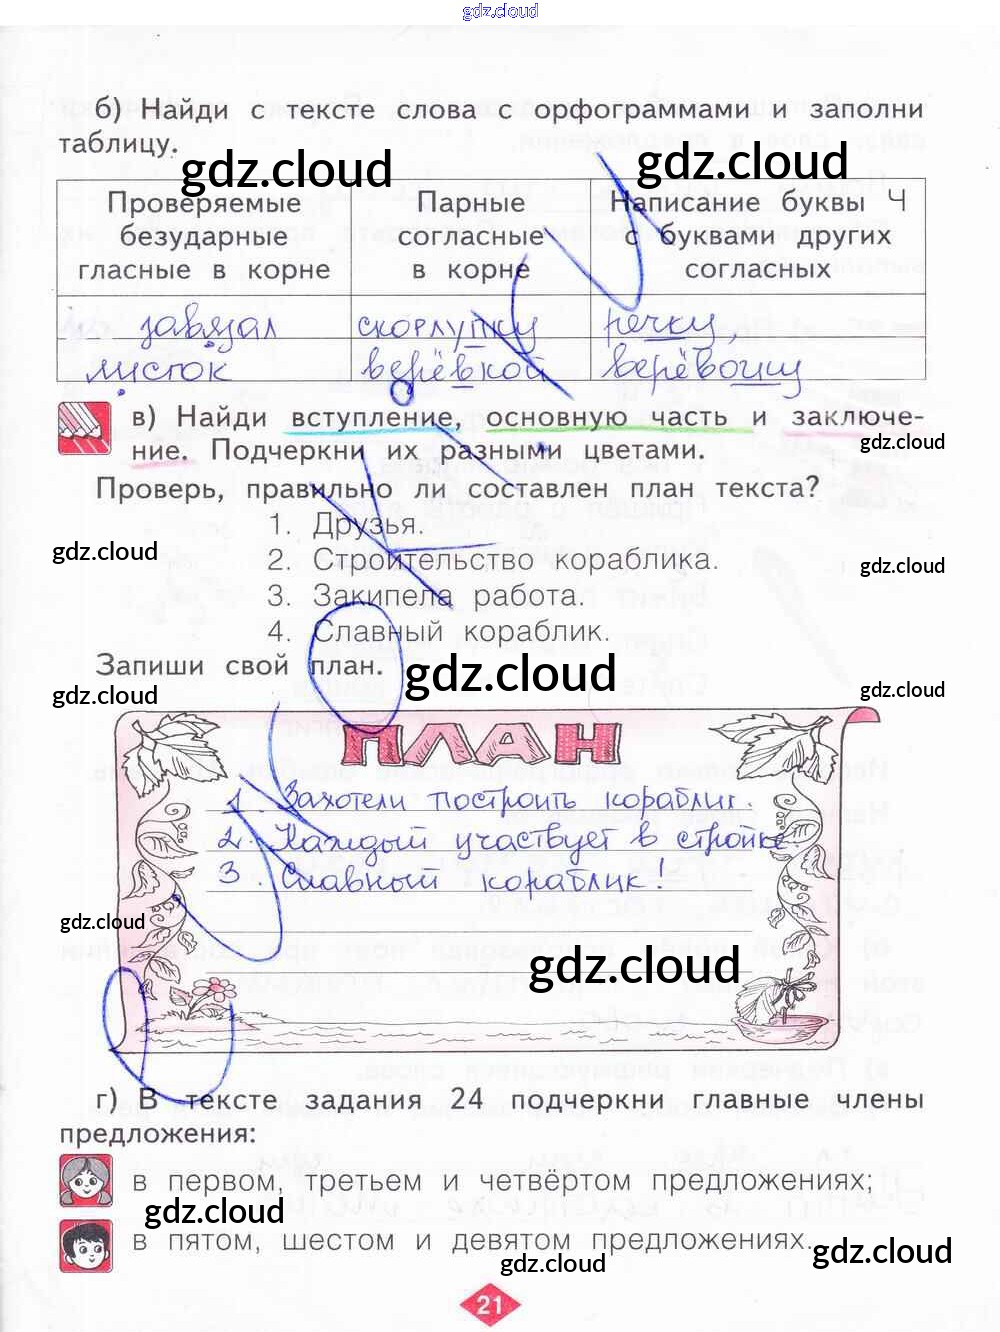 gdz.cloud
б) Найди с тексте слова с орфограммами и заполни
таблицу.
gdz.cloud gdz.cloud
Проверяемые безударные гласные в корне
Парные согласные в корне
Написание буквы Ч с буквами других согласных
завязал скорлупку речку,
листок верёвкой верёвочку
в) Найди вступление, основную часть и заключе-
ние. Подчеркни их разными цветами.
gdz.cloud
Проверь, правильно ли составлен план текста?
1. Друзья.
gdz.cloud
2. Строительство кораблика.
gdz.cloud
3. Закипела работа.
4. Славный кораблик.
Запиши свой план.
gdz.cloud
gdz.cloud
gdz.cloud
ПЛАН
1. Захотели построить кораблик.
2. Каждый участвует в стройке.
3. Славный кораблик!
gdz.cloud
gdz.cloud
г) В тексте задания 24 подчеркни главные члены
предложения:
в первом, третьем и четвёртом предложениях;
gdz.cloud
в пятом, шестом и девятом предложениях.
gdz.cloud
gdz.cloud
21